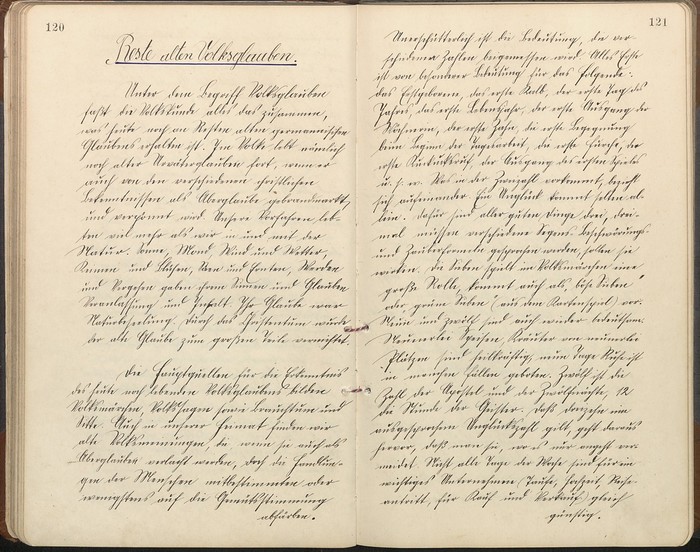 120
Reste alten Volksglauben.
Unter dem Begriff Volksglauben
faßt die Volkskunde alles das zusammen,
was heute noch an Resten alten germanischen
Glaubens erhalten ist. Im Volke lebt nämlich
noch alter Urväterglauben fort, wenn er
auch von den verschiedenen christlichen
Bekenntnissen als Aberglaube gebrandmarkt
und verpönt wird. Unsere Vorfahren leb-
ten viel mehr als wir in und mit der
Natur. Sonne, Mond, Wind und Wetter,
Keimen und Blühen, Säen und Ernten, Werden
und Vergehen gaben ihrem Sinnen und Glauben
Veranlassung und Inhalt. Ihr Glaube war
Naturbeseelung. Durch das Christentum wurde
der alte Glaube zum großen Teile vernichtet.
Die Hauptquellen für die Erkenntnis
des heute noch lebenden Volksglaubens bilden
Volksmärchen, Volkssagen sowie Brauchtum und
Sitte. Auch in unserer Heimat finden wir
alte Volksmeinungen, die, wenn sie auch als
Aberglauben verlacht werden, doch die Handlun-
gen der Menschen mitbestimmen oder
wenigstens auf die Gemütsstimmung
abfärben.
121
Unerschütterlich ist die Bedeutung, die ver-
schiedenen Zahlen beigemessen wird. Alles Erste
ist von besonderer Bedeutung für das Folgende:
das Erstgeborene, das erste Kalb, der erste Tag des
Jahres, das erste Lebensjahr, der erste Ausgang der
Wöchnerin, der erste Zahn, die erste Begegnung
beim Beginn der Tagesarbeit, die erste Furche, der
erste Kuckucksruf, der Ausgang des ersten Spieles
u. s. w. Was in der Zweizahl vorkommt, bezieht
sich aufeinander. Ein Unglück kommt selten al-
lein. Dafür sind aller guten Dinge drei, drei-
mal müssen verschiedene Segens-Beschwörungs-
und Zauberformeln gesprochen werden, sollen sie
wirken. Die Sieben spielt im Volksmärchen eine
große Rolle, kommt auch als "böse Sieben"
oder grüne Sieben (aus dem Kartenspiel) vor.
Neun und zwölf sind auch wieder bedeutsam.
Neunerlei Speisen, Kräuter von neunerlei
Plätzen sind heilkräftig, neun Tage Ruhe ist
in manchen Fällen geboten. Zwölf ist die
Zahl der Apostel und der Zwölfnächte, 12
die Stunde der Geister. Daß dreizehn eine
ausgesprochene Unglückszahl gilt, geht daraus
hervor, daß man sie, wo es nur angeht ver-
meidet. Nicht alle Tage der Woche sind für ein
wichtiges Unternehmen (Taufe, Hochzeit, Reise-
antritt, für Kauf und Verkauf) gleich
günstig.